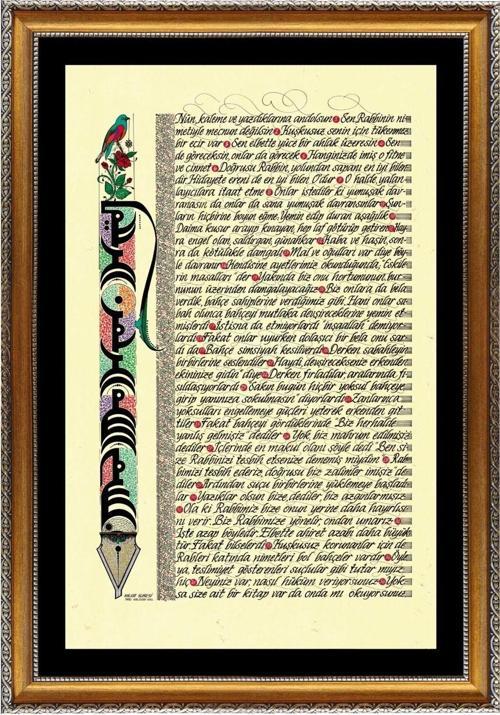 Nûn, kaleme ve yazdıklarına andolsun Sen Rabbinin ni
metiyle mecnun değilsin Kuşkusuz senin için tükenmez
bir ecir var Sen elbette yüce bir ahlak üzeresin Sen
de göreceksin, onlar da görecek Hanginizde imiş o fitne
ve cinnet Doğrusu Rabbin, yolundan sapanı en iyi bilen
dir Hidayete ereni de en iyi bilen O'dur O halde, yalan
layıcılara itaat etme Onlar istediler ki yumuşak dav-
ranasın da onlar da sana yumuşak davransınlar Şun-
ların hiçbirine boyun eğme. Yemin edip duran aşağılık
Daima kusur arayıp kınayan, hep laf götürüp getiren Hay
ra engel olan, saldırgan, günahkar Kaba ve haşin, son-
ra da kötülükle damgalı Mal ve oğulları var diye böy-
le davranır Kendisine ayetlerimiz okunduğunda, "Eskile
rin masalları" der Yakında biz onu hortumunun, bur-
nunun üzerinden damgalayacağız Biz onlara da bela
verdik, bahçe sahiplerine verdiğimiz gibi. Hani onlar sa-
bah olunca bahçeyi mutlaka devşireceklerine yemin et
mişlerdi İstisna da etmiyorlardı inşaallah demiyor-
lardı Fakat onlar uyurken dolaşıcı bir bela onu sar-
dı da Bahçe simsiyah kesiliverdi Derken, sabahleyin
birbirlerine seslendiler Haydi, devşirecekseniz erkenden
ekininize gidin diye Derken fırladılar, aralarında fı-
sıldaşıyorlardı Sakın bugün hiçbir yoksul bahçeye
girip yanınıza sokulmasın diyorlardı Zanlarınca
yoksulları engellemeye güçleri yeterek erkenden git
tiler Fakat bahçeyi gördüklerinde "Biz herhalde
yanlış gelmişiz" dediler Yok, biz mahrum edilmişiz
dediler İçlerinde en makul olanı şöyle dedi "Ben si
ze Rabbinizi tesbih etsenize dememiş miydim" Rab
bimizi tesbih ederiz, doğrusu biz zalimler imişiz de-
diler Ardından suçu birbirlerine yüklemeye başladı
lar Yazıklar olsun bize, dediler, biz azgınlarmışız
Ola ki Rabbimiz bize onun yerine daha hayırlısı
nı verir. Biz Rabbimize yönelir, ondan umarız
İşte azap böyledir. Elbette ahiret azabı daha büyük
tür Fakat bilselerdi Kuşkusuz korunanlar için de
Rableri katında nimetleri bol bahçeler vardır Öyle
ya, teslimiyet gösterenleri suçlular gibi tutar mıyız
hiç Neyiniz var, nasıl hüküm veriyorsunuz Yok-
sa, size ait bir kitap var da, onda mı okuyorsunuz
KALEM SURESİ